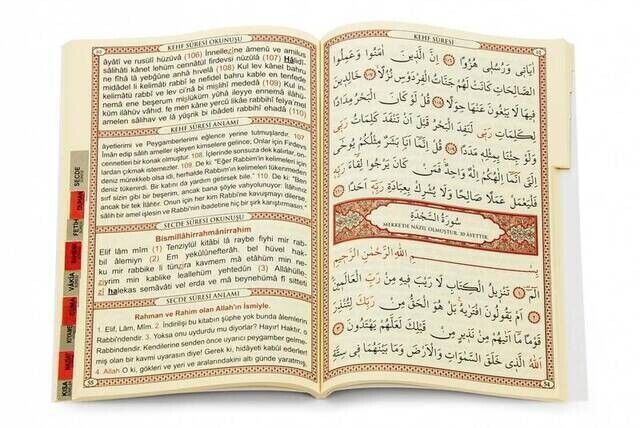 KEHF SÛRESİ OKUNUŞU
âyâtî ve rusulî hüzüvâ (106) İnnellezîne âmenû ve amilus
sâlihâti kânet lehüm cennâtül firdevsi nüzülâ (107) Hâlidî-
(108) Kul lev kânel bahru
midâdel li kelimâti rabbî le nefidel bahru kable en tenfede
kelimâtü rabbî ve lev ci'nâ bi mislihî mededâ (109) Kul in-
nemâ ene beşerum mislüküm yûhâ ileyye ennemâ ilâhü-
küm ilâhüv vâhid, fe men kâne yercû likâe rabbihî felya'mel
amelen sâlihav ve lâ yüşrik bi ibâdeti rabbihî ehadâ (110)
KEHF SÛRESİ ANLAMI
âyetlerimi ve Peygamberlerimi eğlence yerine tutmuşlardır. 107.
İman edip salih ameller işleyen kimselere gelince; Onlar için Firdevs
cennetleri bir konak olmuştur. 108. İçlerinde sonsuza dek kalırlar, on-
lardan çıkmak istemezler. 109. De ki: "Eğer Rabbim'in kelimeleri için
deniz mürekkeb olsa idi, herhalde Rabbim'in kelimeleri tükenmeden
deniz tükenirdi. Bir katını da yardım getirsek bile." 110. De ki: "Ben
sırf sizin gibi bir beşerim, ancak bana şöyle vahyolunuyor: İlâhınız
ancak bir tek ilâhtır. Onun için her kim Rabbi'ne kavuşmayı dilerse,
salih bir amel işlesin ve Rabbi'nin ibadetine hiç bir şirk karıştırmasın."
SECDE SÛRESİ OKUNUŞU
Bismillâhirrahmânirrahîm
Elif lâm mîm (1) Tenzîylül kitâbi lâ raybe fîhi mir rab-
bil âlemîyn (2) Em yekûlûnefterâh, bel hüvel hak-
ku mir rabbike li tünzira kavmem mâ etâhüm min ne-
zîyrim min kablike leallehüm yehtedûn (3) Allâhülle-
zî halekas semâvâti vel erda ve mâ beynehümâ fî sitteti
SECDE SÛRESİ ANLAMI
Rahman ve Rahim olan Allah'ın İsmiyle.
1. Elif, Lâm, Mîm. 2. İndirilişi bu kitabın şüphe yok bunda âlemlerin
Rabbi'ndendir. 3. Yoksa onu uydurdu mu diyorlar? Hayır! Haktır, o
Rabbi'ndendir. Kendilerine senden önce uyarıcı peygamber gelme-
miş olan bir kavmi uyarasın diye! Gerek ki, hidâyeti kabul ederler!
4. Allah O ki, gökleri ve yeri ve aralarındakini altı günde yarattı,
KEHF SÛRESİ
اٰيَاتٖي وَرُسُلٖي هُزُوًا ﴿١٠٦﴾ اِنَّ الَّذٖينَ اٰمَنُوا وَعَمِلُوا
الصَّالِحَاتِ كَانَتْ لَهُمْ جَنَّاتُ الْفِرْدَوْسِ نُزُلًا ﴿١٠٧﴾ خَالِدٖينَ
فٖيهَا لَا يَبْغُونَ عَنْهَا حِوَلًا ﴿١٠٨﴾ قُلْ لَوْ كَانَ الْبَحْرُ مِدَادًا
لِكَلِمَاتِ رَبّٖي لَنَفِدَ الْبَحْرُ قَبْلَ اَنْ تَنْفَدَ كَلِمَاتُ رَبّٖي
وَلَوْ جِئْنَا بِمِثْلِهٖ مَدَدًا ﴿١٠٩﴾ قُلْ اِنَّمَا اَنَا بَشَرٌ مِثْلُكُمْ يُوحٰٓى
اِلَيَّ اَنَّمَا اِلٰهُكُمْ اِلٰهٌ وَاحِدٌ فَمَنْ كَانَ يَرْجُوا لِقَٓاءَ رَبِّهٖ
فَلْيَعْمَلْ عَمَلًا صَالِحًا وَلَا يُشْرِكْ بِعِبَادَةِ رَبِّهٖٓ اَحَدًا ﴿١١٠﴾
سُورَةُ السَّجْدَةِ
MEKKE'DE NÂZİL OLMUŞTUR. 30 ÂYETTİR.
بِسْمِ اللّٰهِ الرَّحْمٰنِ الرَّحٖيمِ
الٓمٓ ﴿١﴾ تَنْزٖيلُ الْكِتَابِ لَا رَيْبَ فٖيهِ مِنْ رَبِّ الْعَالَمٖينَ
﴿٢﴾ اَمْ يَقُولُونَ افْتَرٰيهُ بَلْ هُوَ الْحَقُّ مِنْ رَبِّكَ لِتُنْذِرَ
قَوْمًا مَٓا اَتٰيهُمْ مِنْ نَذٖيرٍ مِنْ قَبْلِكَ لَعَلَّهُمْ يَهْتَدُونَ ﴿٣﴾
اَللّٰهُ الَّذٖي خَلَقَ السَّمٰوَاتِ وَالْاَرْضَ وَمَا بَيْنَهُمَا فٖي سِتَّةِ
SECDE
DUHAN
FETİH
VÂKIA
KIYAMET